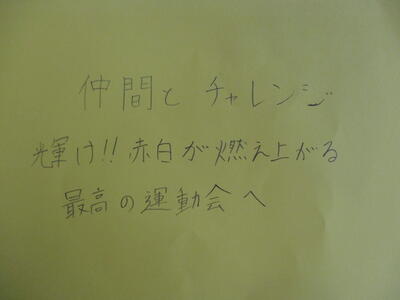 仲間と チャレンジ
輝け!! 赤白が燃え上がる
最高の運動会へ